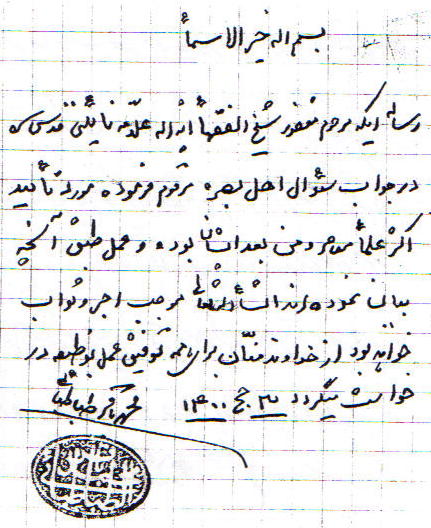 بسم الله خیر الاسماء
رساله ایکه مرحوم مغفور شیخ الفقهاء آیة الله علامه نائینی قدس سره
در جواب سؤال اهل بصره مرقوم فرموده مورد تأیید
اکثر علماء معاصر و من بعد ایشان بوده و عمل طبق آنچه
بیان نموده‌اند انشاء الله تعالی موجب اجر و ثواب
خواهد بود از خداوند منان برای همه توفیق عمل بوظیفه در
خواست میگردد ۳ ج ۱۴۰۰ محمد باقر طباطبائی